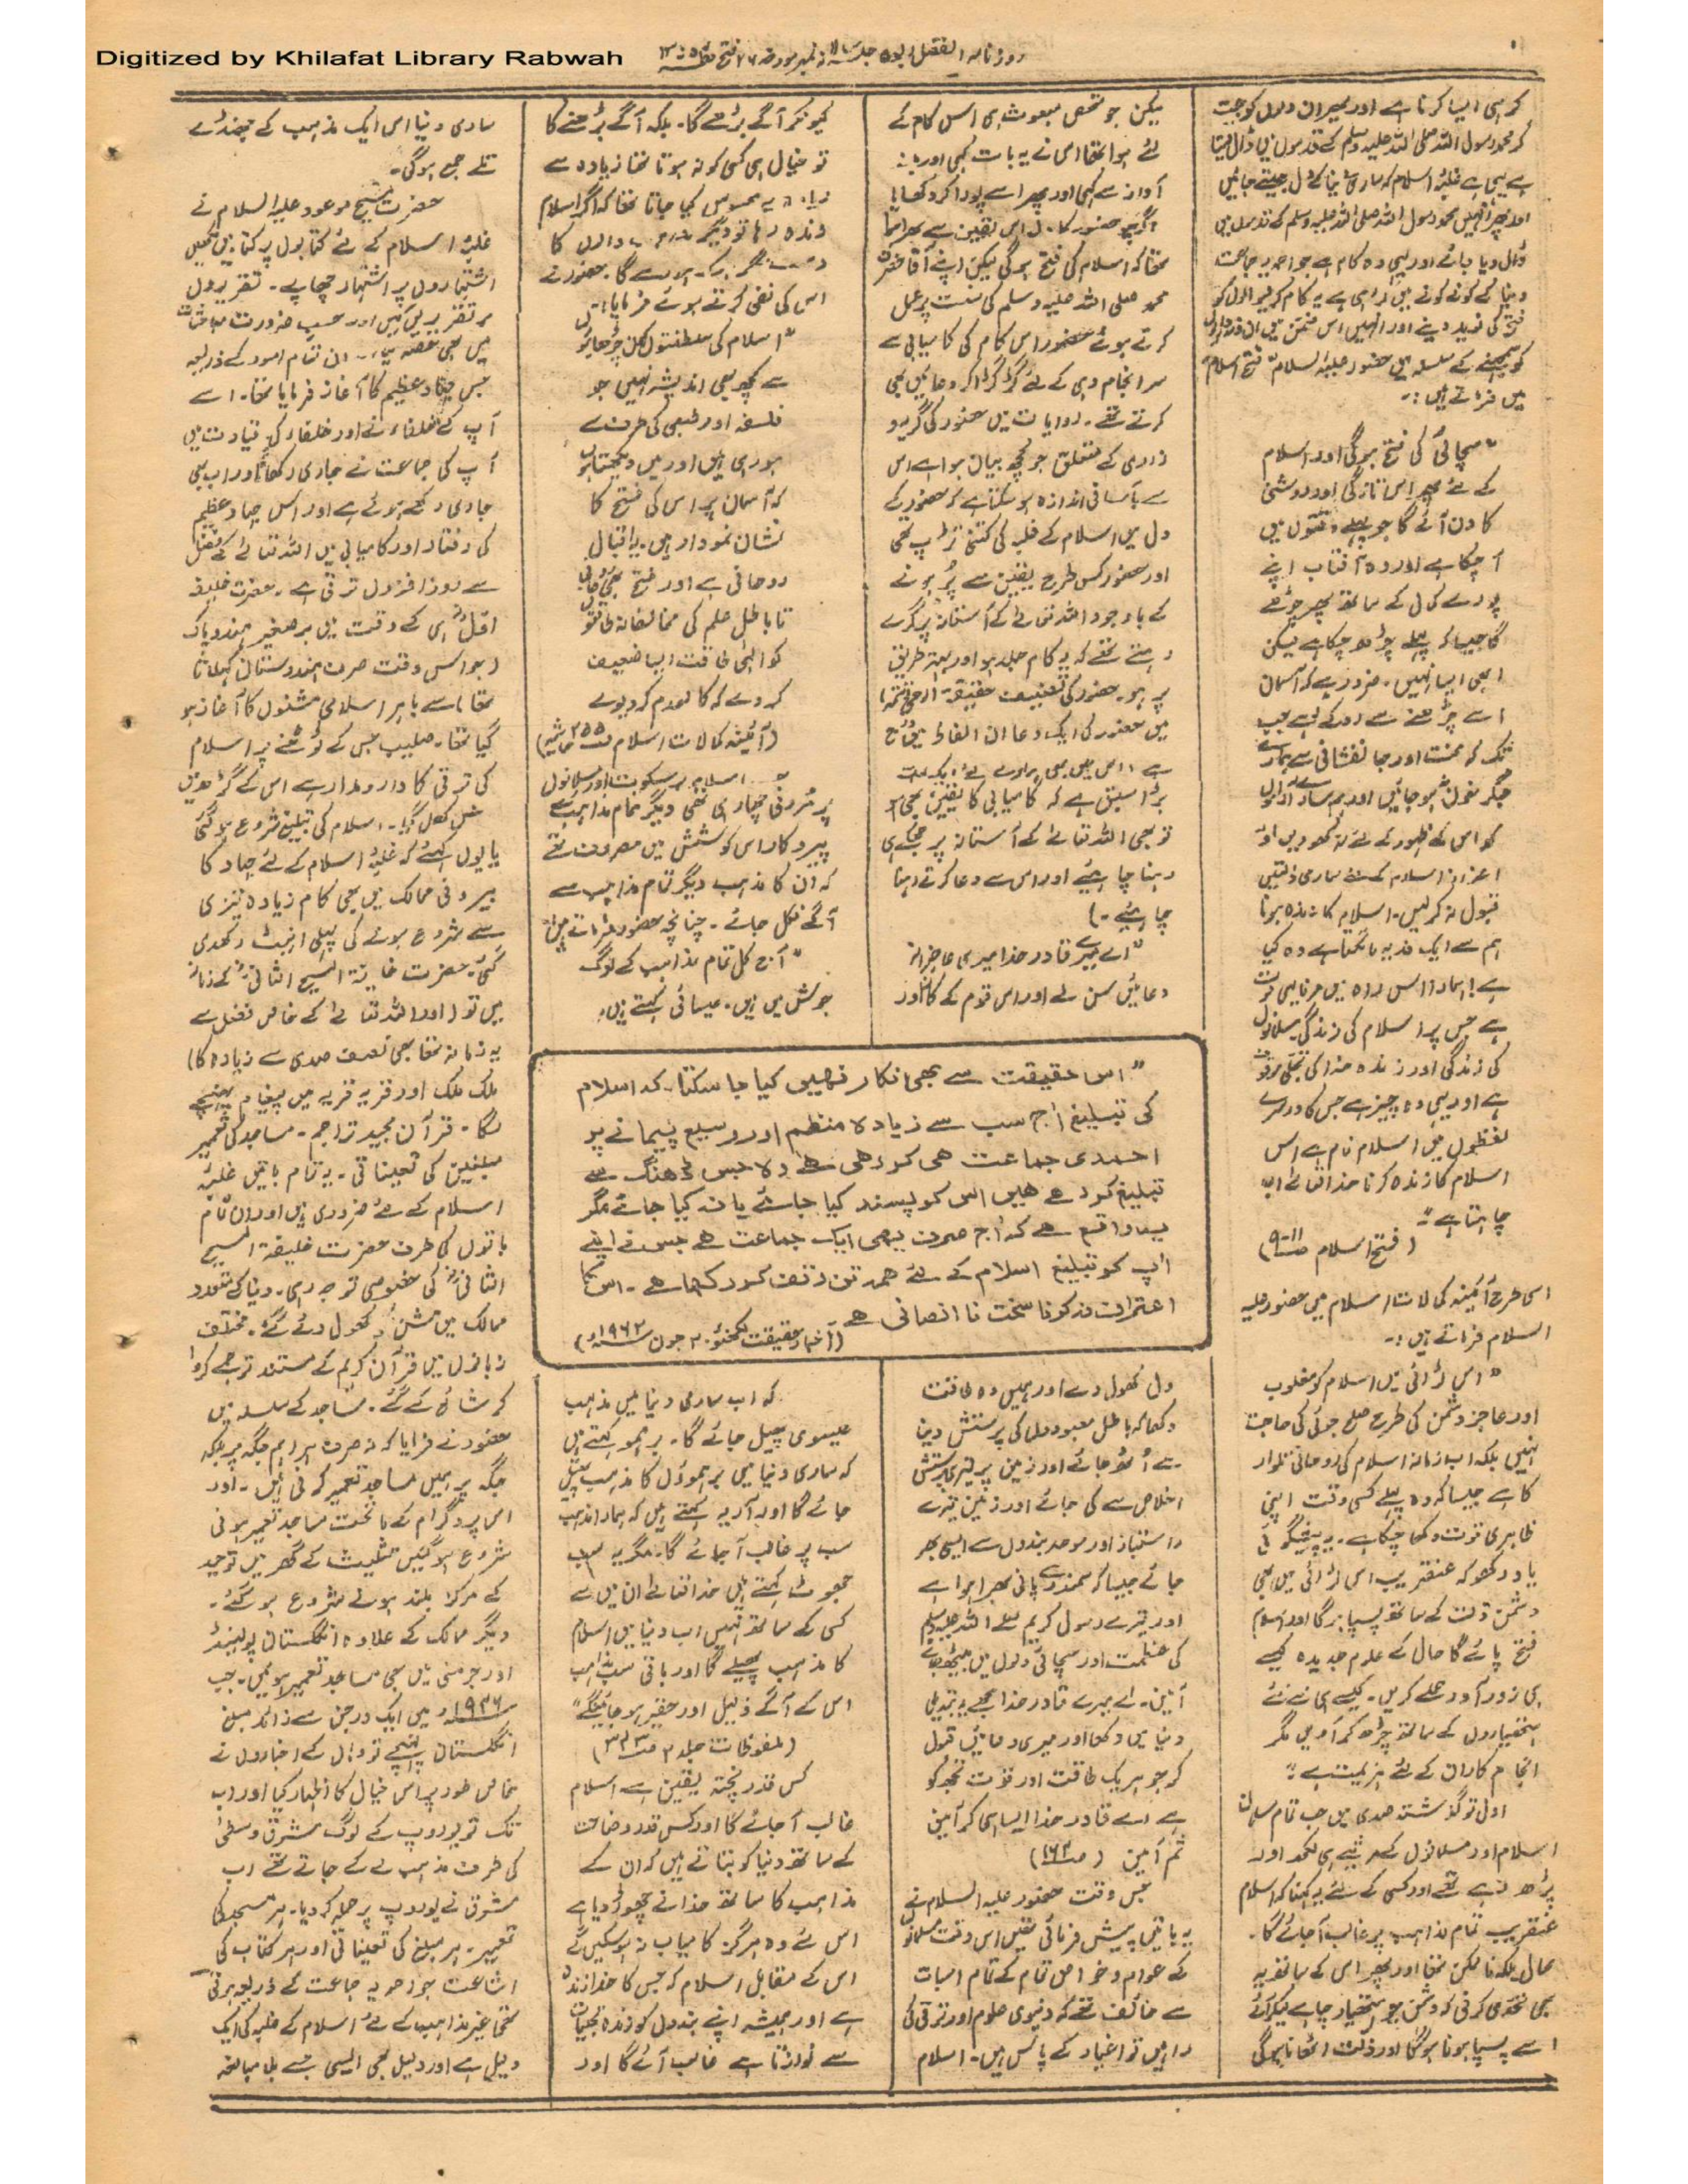 Digitized by Khilafat Library Rabwah
کر ہی ایسا کرنا ہے اور پھر ان دلوں کو جیت
کر محمد رسول اللہ صلی اللہ علیہ وسلم کے قدموں میں ڈال دینا
ہے یہی ہے غلبۂ اسلام کہ ساری دنیا کے دل جیتے جائیں
اور پھر انہیں محمد رسول اللہ صلی اللہ علیہ وسلم کے قدموں میں
ڈال دیا جائے اور یہی وہ کام ہے جو احمدیہ جماعت
دنیا کے کونے کونے میں کر رہی ہے یہ کام کرنیوالوں کو
فتح کی نوید دینے اور انہیں اس ضمن میں ان ذمہ داریوں
کو سمجھنے کے سلسلہ میں حضور علیہ السلام "فتح اسلام"
میں فرماتے ہیں :۔
"سچائی کی فتح ہوگی اور اسلام
کے لئے پھر اس تازگی اور روشنی
کا دن آئے گا جو پہلے وقتوں میں
آ چکا ہے اور وہ آفتاب اپنے
پورے کمال کے ساتھ پھر چڑھے
گا جیسا کہ پہلے چڑھ چکا ہے لیکن
ابھی ایسا نہیں۔ ضرور ہے کہ آسمان
اسے چڑھنے سے روکے رہے جب
تک کہ محنت اور جانفشانی سے ہمارے
جگر خون نہ ہو جائیں اور ہم سارے آراموں
کو اس کے ظہور کے لئے نہ کھو دیں اور
اعزاز اسلام کے لئے ساری ذلتیں
قبول نہ کر لیں۔ اسلام کا زندہ ہونا
ہم سے ایک فدیہ مانگتا ہے وہ کیا
ہے! ہمارا اس راہ میں مرنا یہی موت
ہے جس پر اسلام کی زندگی مسلمانوں
کی زندگی اور زندہ خدا کی تجلی موقوف
ہے اور یہی وہ چیز ہے جس کا دوسرے
لفظوں میں اسلام نام ہے اس
اسلام کا زندہ کرنا خدا تعالیٰ اب
چاہتا ہے"۔
(فتح اسلام
اسی طرح آئینہ کمالات اسلام میں حضور علیہ
السلام فرماتے ہیں :۔
"اس لڑائی میں اسلام کو مغلوب
اور عاجز دشمن کی طرح صلح جوئی کی حاجت
نہیں بلکہ اب زمانہ اسلام کی روحانی تلوار
کا ہے جیسا کہ وہ پہلے کسی وقت اپنی
ظاہری قوت دکھا چکا ہے۔ یہ پیشگوئی
یاد رکھو کہ عنقریب اس لڑائی میں بھی
دشمن ذلت کے ساتھ پسپا ہوگا اور اسلام
فتح پائے گا حال کے علوم جدیدہ کیسے
ہی زور آور حملے کریں۔ کیسے ہی نئے نئے
ہتھیاروں کے ساتھ چڑھ کر آویں مگر
انجام کار ان کے لئے ہزیمت ہے"
اول تو گذشتہ صدی میں جب تمام مسلمان
اسلام اور مسلمانوں کے مرثیے ہی لکھ اور
پڑھ رہے تھے اور کسی کے لئے یہ کہنا کہ اسلام
عنقریب تمام مذاہب پر غالب آ جائے گا۔
محال بلکہ ناممکن تھا اور پھر اس کے ساتھ یہ
بھی تحدی کرنی کہ دشمن جو ہتھیار چاہے لیکر آئے
اسے پسپا ہونا ہوگا اور ذلت اٹھانا ہوگی
لیکن جو شخص مبعوث ہی اس کام کے
لئے ہوا تھا اس نے یہ بات کہی اور
آواز سے کہی اور پھر اسے پورا کر دکھایا
اگرچہ حضور کا دل اس یقین سے بھرا ہوا
تھا کہ اسلام کی فتح ہوگی لیکن اپنے آقا حضرت
محمد صلی اللہ علیہ وسلم کی سنت پر عمل
کرتے ہوئے حضور اس کام کی کامیابی سے
سرانجام دہی کے لئے گڑگڑا کر دعائیں بھی
کرتے تھے۔ روایات میں حضور کی گریہ و
زاری کے متعلق جو کچھ بیان ہوا ہے اس
سے بآسانی اندازہ ہو سکتا ہے کہ حضور کے
دل میں اسلام کے غلبہ کی کتنی تڑپ تھی
اور حضور کس طرح یقین سے پُر ہونے
کے باوجود اللہ تعالیٰ کے آستانہ پر گرے
رہتے تھے کہ یہ کام جلد ہو اور بہتر طریق
پر ہو۔ حضور کی تصنیف حقیقۃ الوحی (تتمہ)
میں حضور کی ایک دعا ان الفاظ میں درج
ہے (اس میں بھی ہمارے لئے ایک بہت
بڑا سبق ہے کہ کامیابی کا یقین بھی ہو
تو بھی اللہ تعالیٰ کے آستانہ پر جھکے ہی
رہنا چاہیئے اور اس سے دعا کرتے رہنا
چاہیئے۔)
"اے میرے قادر خدا میری عاجزانہ
دعائیں سن لے اور اس قوم کے کان اور
دل کھول دے اور ہمیں وہ وقت
دکھا کہ باطل معبودوں کی پرستش دنیا
سے اُٹھ جائے اور زمین پر تیری پرستش
اخلاص سے کی جائے اور زمین تیرے
راستباز اور موحد بندوں سے ایسی بھر
جائے جیسا کہ سمندر پانی سے بھرا ہوا ہے
اور تیرے رسول کریم صلے اللہ علیہ وسلم
کی عظمت اور سچائی دلوں میں بیٹھ جائے
آمین۔ اے میرے قادر خدا مجھے یہ تبدیلی
دنیا میں دکھا اور میری دعائیں قبول
کر جو ہریک طاقت اور قوت تجھ کو
ہے اے قادر خدا ایسا ہی کر آمین
ثم آمین
جس وقت حضور علیہ السلام نے
یہ باتیں پیش فرمائی تھیں اس وقت مسلمانوں
کے عوام و خواص تمام کے تمام اس بات
سے خائف تھے کہ دنیوی علوم اور ترقی کی
راہیں تو اغیار کے پاس ہیں۔ اسلام
کیونکر آگے بڑھے گا۔ بلکہ آگے بڑھنے کا
تو خیال ہی کسی کو نہ ہوتا تھا زیادہ سے
زیادہ یہ محسوس کیا جاتا تھا کہ اگر اسلام
زندہ رہا تو دیگر والوں کا
حضور نے
اس کی نفی کرتے ہوئے فرمایا:۔
"اسلام کی سلطنت کو ان چڑھائیوں
سے کچھ بھی اندیشہ نہیں جو
فلسفہ اور طبعی کی طرف سے
ہو رہی ہیں اور میں دیکھتا ہوں
کہ آسمان پر اس کی فتح کا
نشان نمودار ہیں۔ یہ اقبال
روحانی ہے اور فتح بھی روحانی
تا باطل علم کی مخالفانہ طاقتوں
کو الٰہی طاقت ایسا ضعیف
کر دے کہ کالعدم کر دیوے
(آئینہ کمالات اسلام ۲۵۵ حاشیہ)
اسلام پر سکوت اور مسلمانوں
پر مُردنی چھا رہی تھی دیگر تمام مذاہب کے
پیروکار اس کوشش میں مصروف تھے
کہ ان کا مذہب دیگر تمام مذاہب سے
آگے نکل جائے۔ چنانچہ حضور فرماتے ہیں:
"آج کل تمام مذاہب کے لوگ
جوش میں ہیں۔ عیسائی کہتے ہیں
کہ اب ساری دنیا میں مذہب
عیسوی پھیل جائے گا۔ برہمو کہتے ہیں
کہ ساری دنیا میں برہموؤں کا مذہب پھیل
جائے گا اور آریہ کہتے ہیں کہ ہمارا مذہب
سب پر غالب آ جائے گا۔ مگر یہ سب
جھوٹ کہتے ہیں خدا تعالےٰ ان میں سے
کسی کے ساتھ نہیں اب دنیا میں اسلام
کا مذہب پھیلے گا اور باقی سب مذاہب
اس کے آگے ذلیل اور حقیر ہو جائینگے"
(ملفوظات جلد
کس قدر پختہ یقین ہے اسلام
غالب آ جائے گا اور کس قدر وضاحت
کے ساتھ دنیا کو بتاتے ہیں کہ ان کے
مذاہب کا ساتھ خدا نے چھوڑ دیا ہے
اس لئے وہ ہرگز کامیاب نہ ہو سکیں گے
اس کے مقابل اسلام کہ جس کا خدا زندہ
ہے اور ہمیشہ اپنے بندوں کو زندہ تجلیات
سے نوازتا ہے غالب آئے گا اور
ساری دنیا اس ایک مذہب کے جھنڈے
تلے جمع ہوگی۔
حضرت مسیح موعود علیہ السلام نے
غلبۂ اسلام کے لئے کتابوں پر کتابیں لکھیں
اشتہاروں پر اشتہار چھاپے۔ تقریروں
پر تقریریں کیں اور حسب ضرورت مباحثات
میں بھی حصہ لیا۔ ان تمام امور کے ذریعہ
جس جہاد عظیم کا آغاز فرمایا تھا۔ اسے
آپ کے خلفاء نے اور خلفاء کی قیادت میں
آپ کی جماعت نے جاری رکھا اور اب بھی
جاری رکھے ہوئے ہے اور اس جہاد عظیم
کی رفتار اور کامیابی میں اللہ تعالےٰ کے فضل
سے روز افزوں ترقی ہے۔ حضرت خلیفہ
اوّل ہی کے وقت میں برصغیر ہند و پاک
(جو اس وقت صرف ہندوستان کہلاتا
تھا) سے باہر اسلامی مشنوں کا آغاز ہو
گیا تھا۔ صلیب جس کے ٹوٹنے پر اسلام
کی ترقی کا دار و مدار ہے اس کے گڑھ میں
مشن کھل گیا۔ اسلام کی تبلیغ شروع ہو گئی
یا یوں کہئے کہ غلبۂ اسلام کے لئے جہاد کا
بیرونی ممالک میں بھی کام زیادہ تیزی
سے شروع ہونے کی پہلی اینٹ رکھدی
گئی۔ حضرت خلیفۃ المسیح الثانی کے زمانہ
میں تو (اور اللہ تعالےٰ کے خاص فضل سے
یہ زمانہ تھا بھی نصف صدی سے زیادہ کا)
ملک ملک اور قریہ قریہ میں پیغام پہنچنے
لگا۔ قرآن مجید تراجم۔ مساجد کی تعمیر
مبلغین کی تعیناتی۔ یہ تمام باتیں غلبۂ
اسلام کے لئے ضروری ہیں اور ان تمام
باتوں کی طرف حضرت خلیفۃ المسیح
الثانی کی خصوصی توجہ رہی۔ دنیا کے متعدد
ممالک میں مشن کھول دئے گئے۔ مختلف
زبانوں میں قرآن کریم کے مستند ترجمے کروا
کر شائع کئے گئے۔ مساجد کے سلسلہ میں
حضور نے فرمایا کہ نہ صرف ہر اہم جگہ پر بلکہ
جگہ پر ہمیں مساجد تعمیر کرنی ہیں۔ اور
اس پروگرام کے ماتحت مساجد تعمیر ہونی
شروع ہو گئیں تثلیث کے گھر میں توحید
کے مرکز بلند ہونے شروع ہو گئے۔
دیگر ممالک کے علاوہ انگلستان ہالینڈ
اور جرمنی میں بھی مساجد تعمیر ہوئیں۔ جب
میں ایک درجن سے زائد مبلغ
انگلستان پہنچے تو وہاں کے اخباروں نے
خاص طور پر اس خیال کا اظہار کیا اور اب
تک تو یوروپ کے لوگ مشرق وسطیٰ
کی طرف مذہب لے کے جاتے تھے اب
مشرق نے یوروپ پر حملہ کر دیا۔ ہر مسجد کی
تعمیر۔ ہر مبلغ کی تعیناتی اور ہر کتاب کی
اشاعت جو احمدیہ جماعت کے ذریعہ ہوتی
تھی غیر مذاہب کے لئے اسلام کے غلبہ کی ایک
دلیل ہے اور دلیل بھی ایسی جسے بلا مبالغہ
"اس حقیقت سے بھی انکار نہیں کیا جا سکتا۔ کہ اسلام
کی تبلیغ آج سب سے زیادہ منظم اور وسیع پیمانے پر
احمدی جماعت ہی کر رہی ہے وہ جس ڈھنگ سے
تبلیغ کر رہے ہیں اس کو پسند کیا جائے یا نہ کیا جائے مگر
یہ واقع ہے کہ آج صرف یہی ایک جماعت ہے جس نے اپنے
آپ کو تبلیغ اسلام کے لئے ہمہ تن وقف کر رکھا ہے۔ اس کا
اعتراف نہ کرنا سخت نا انصافی ہے
(اخبار حقیقت لکھنؤ ۲۰ جون ۱۹۶۲ء)